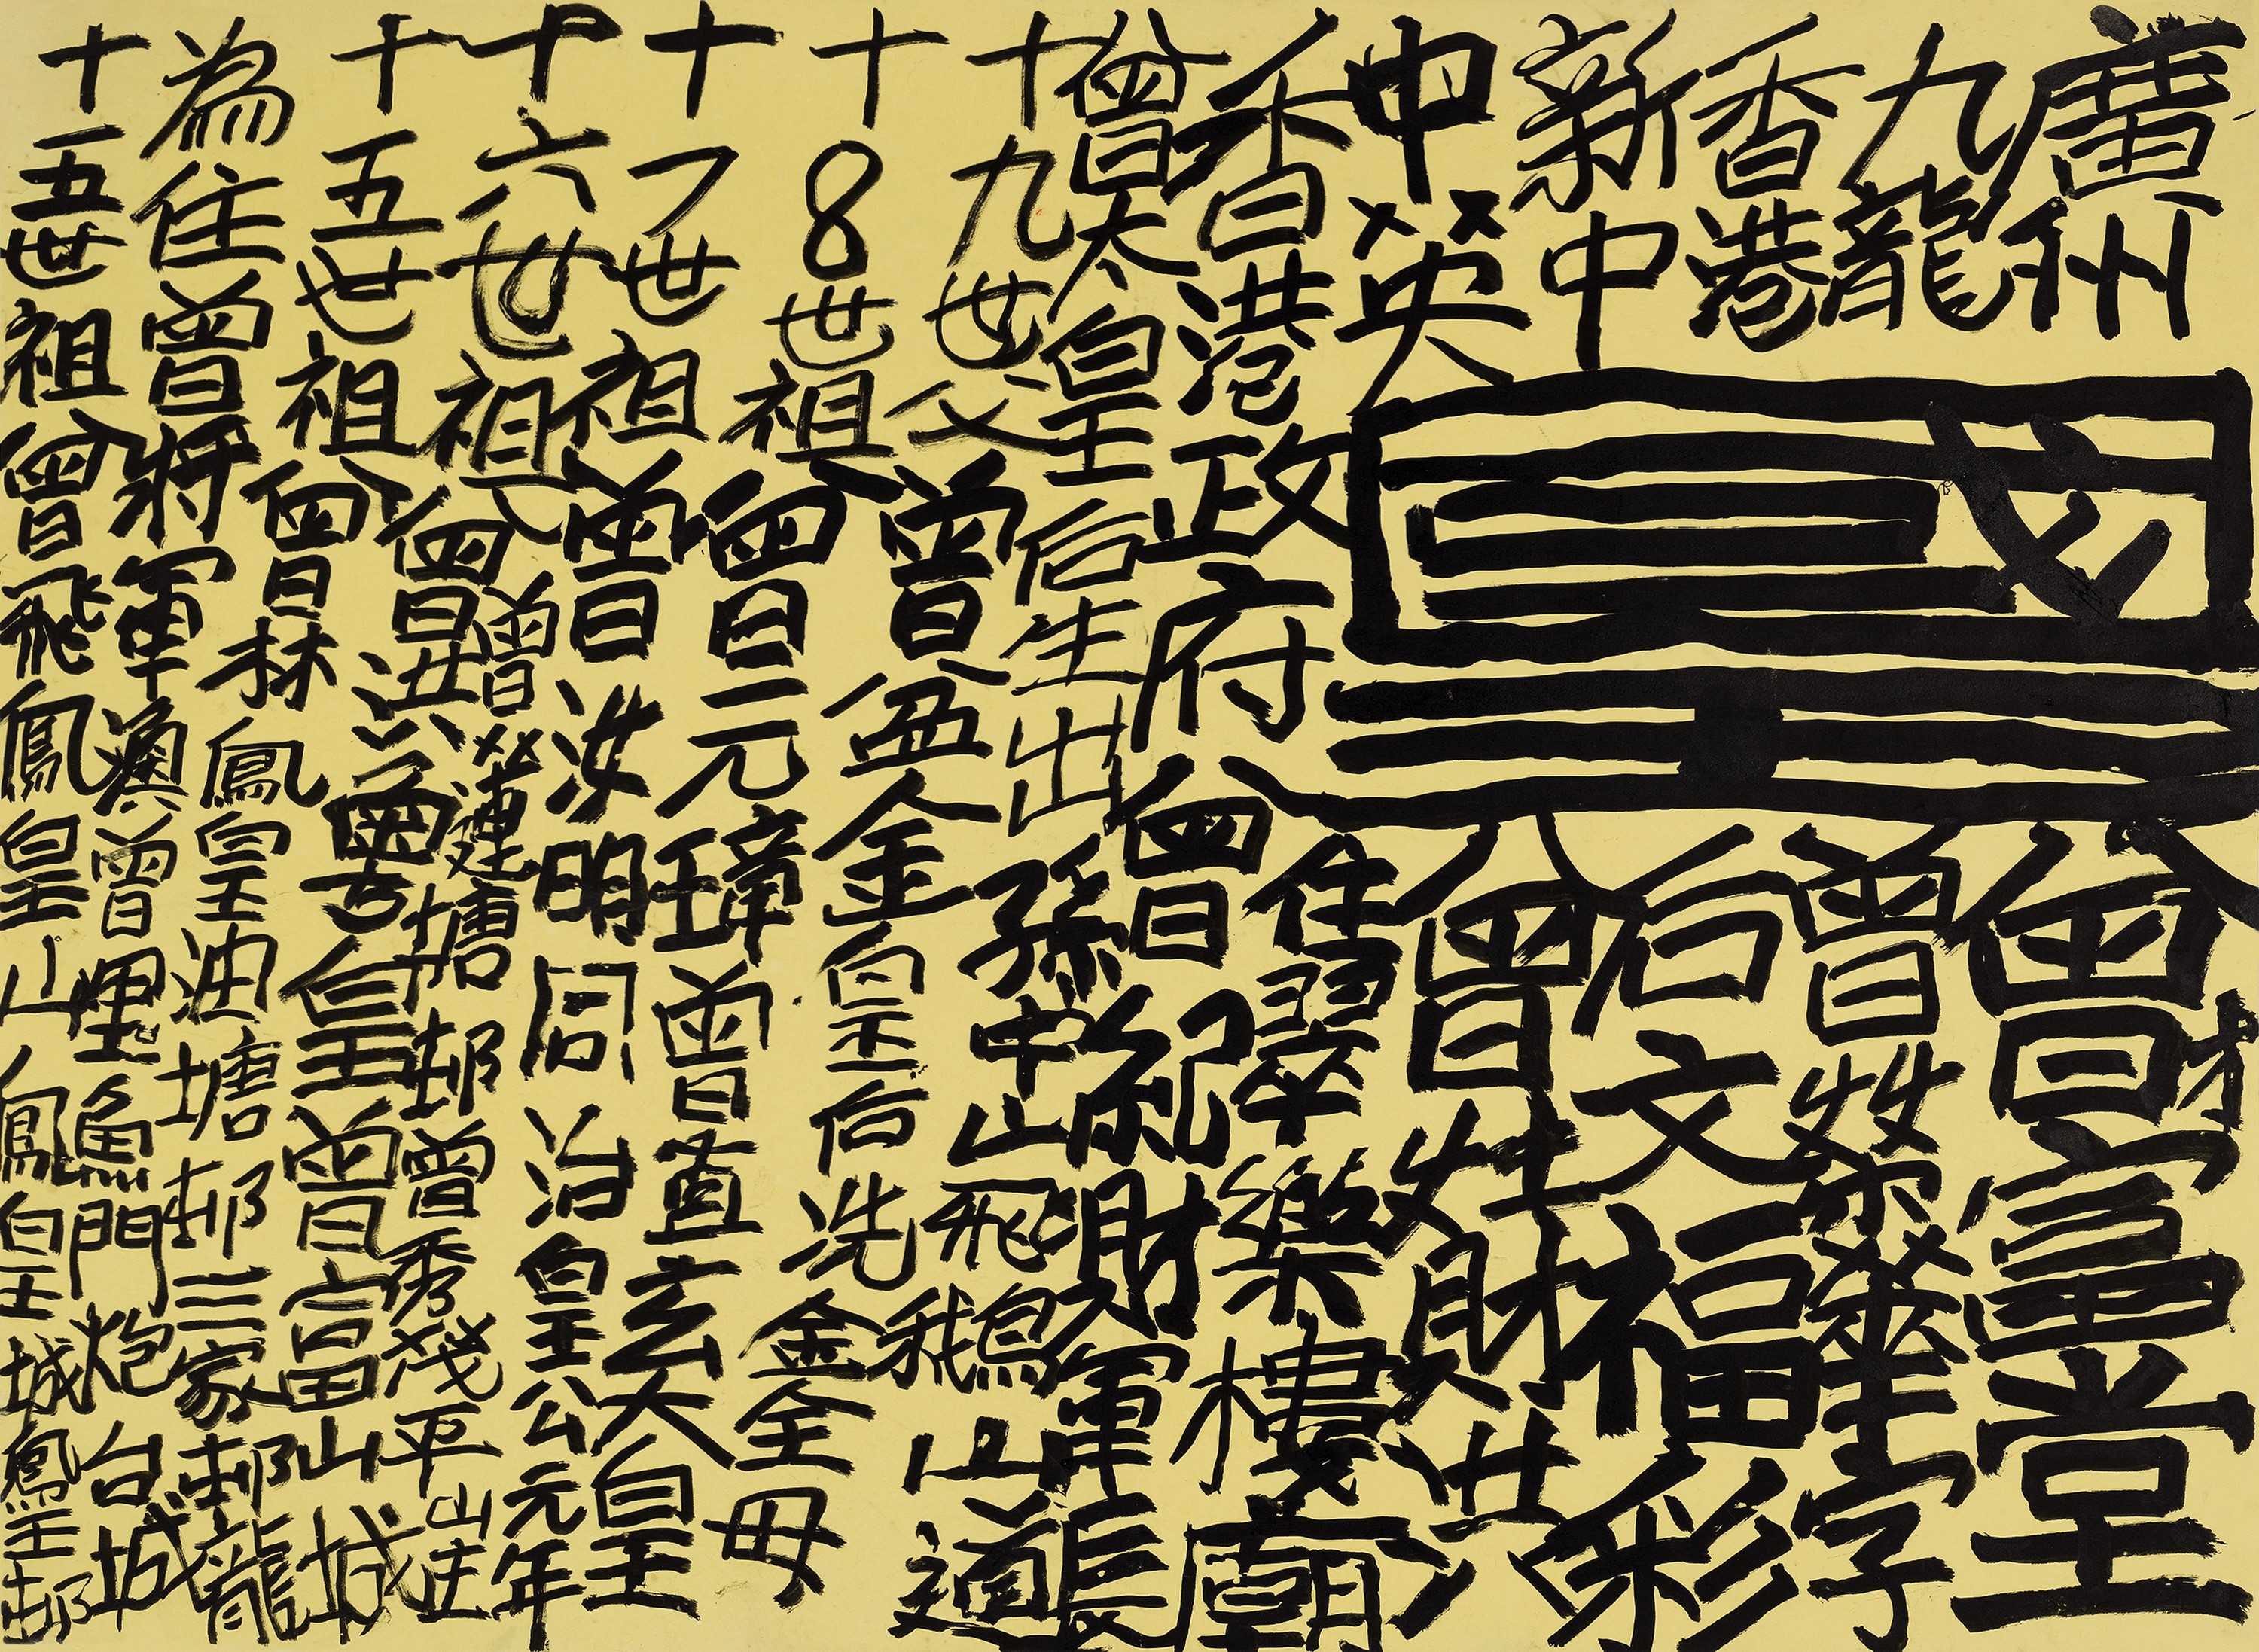 廣州
九龍
香港
新中
中英
國皇
曾富堂
曾榮華字
后文福彩
曾娃財洪
住翠樂樓廟
香港政府曾紀財軍長
曾太皇后生出孫中山飛鵝山道
十九世父曾盈金皇后冼金全母
十8世祖曾元璋曾直玄大皇
十7世祖曾汝明同治皇公元年
曾蓮塘邨曾秀茂平山庄
十六世祖曾洪公粵皇曾富山城
十五世祖曾林鳳皇油塘邨三家邨龍
為住曾將軍澳曾理魚門炮台城
十五世祖曾飛鳳皇山鳳皇城鳳王邨